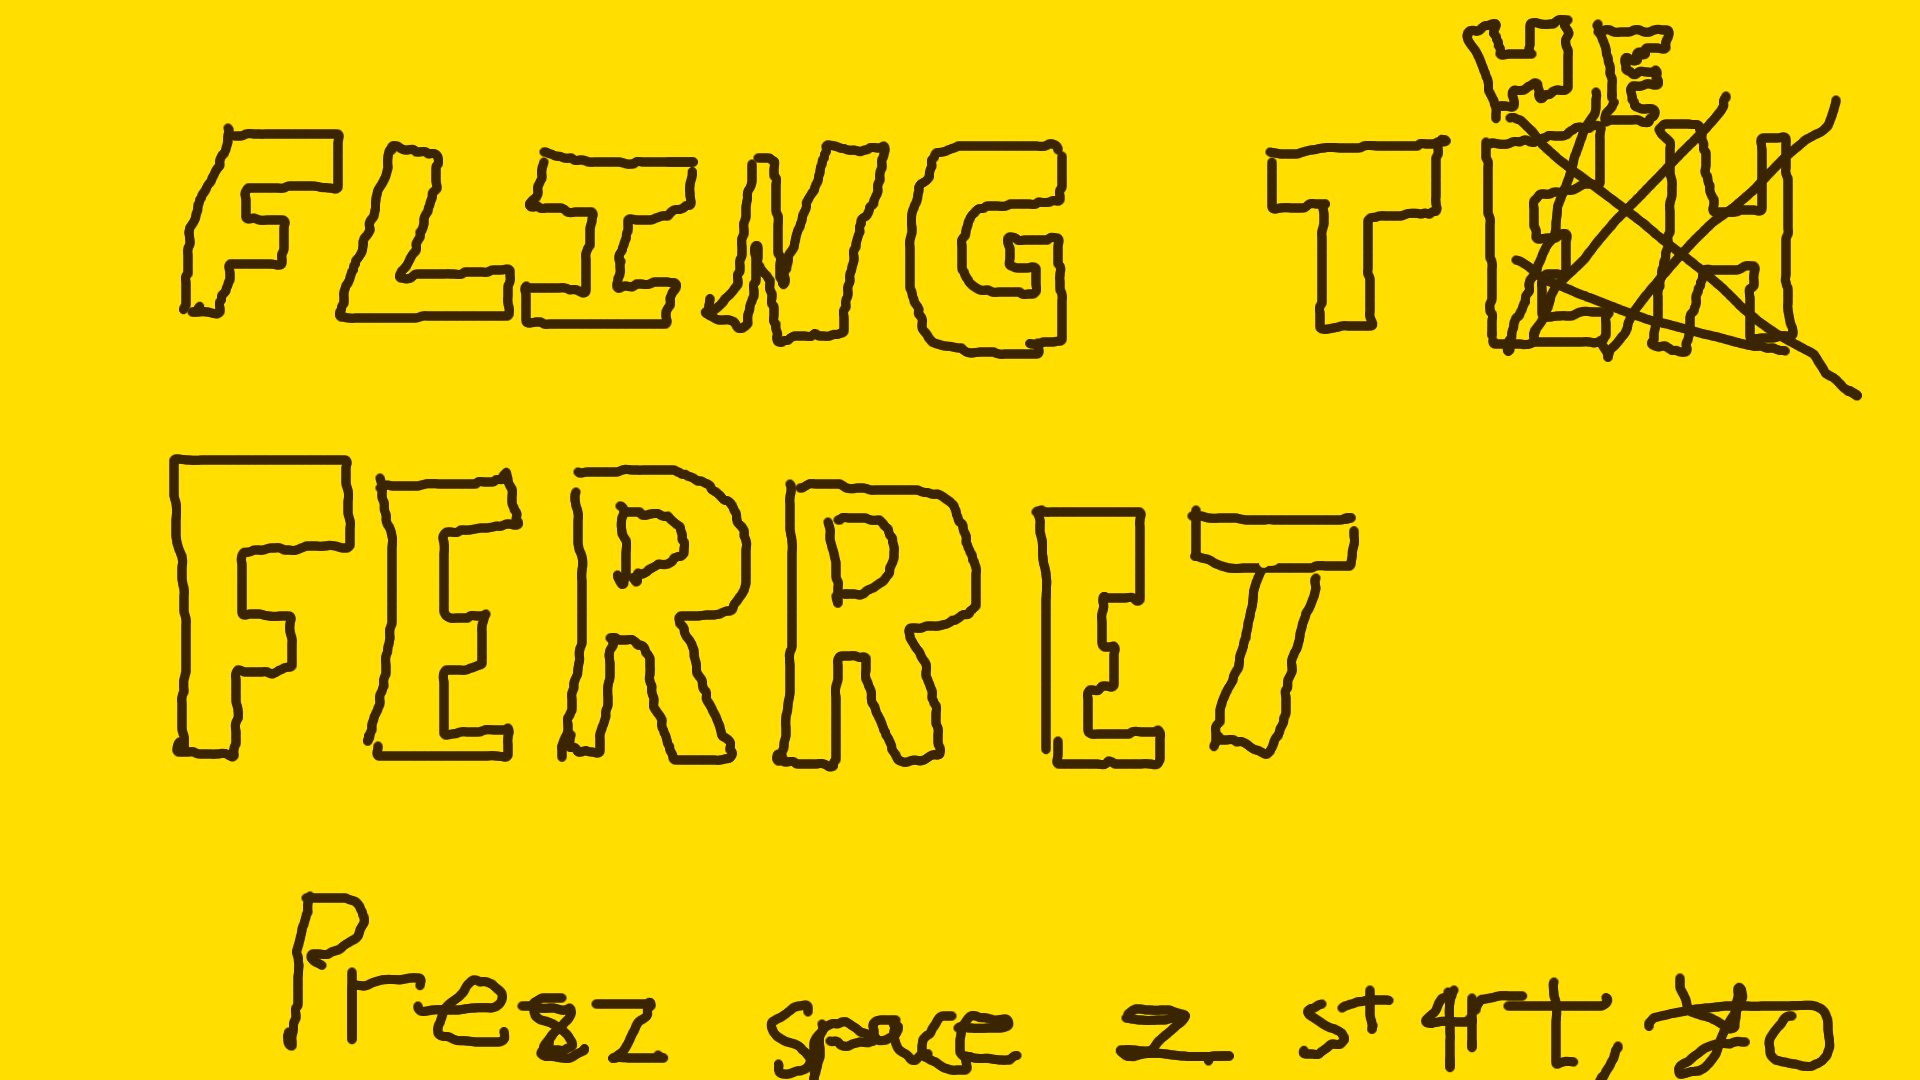 FLING THE
FERRET
Pre8z space 2 st4rt, yo